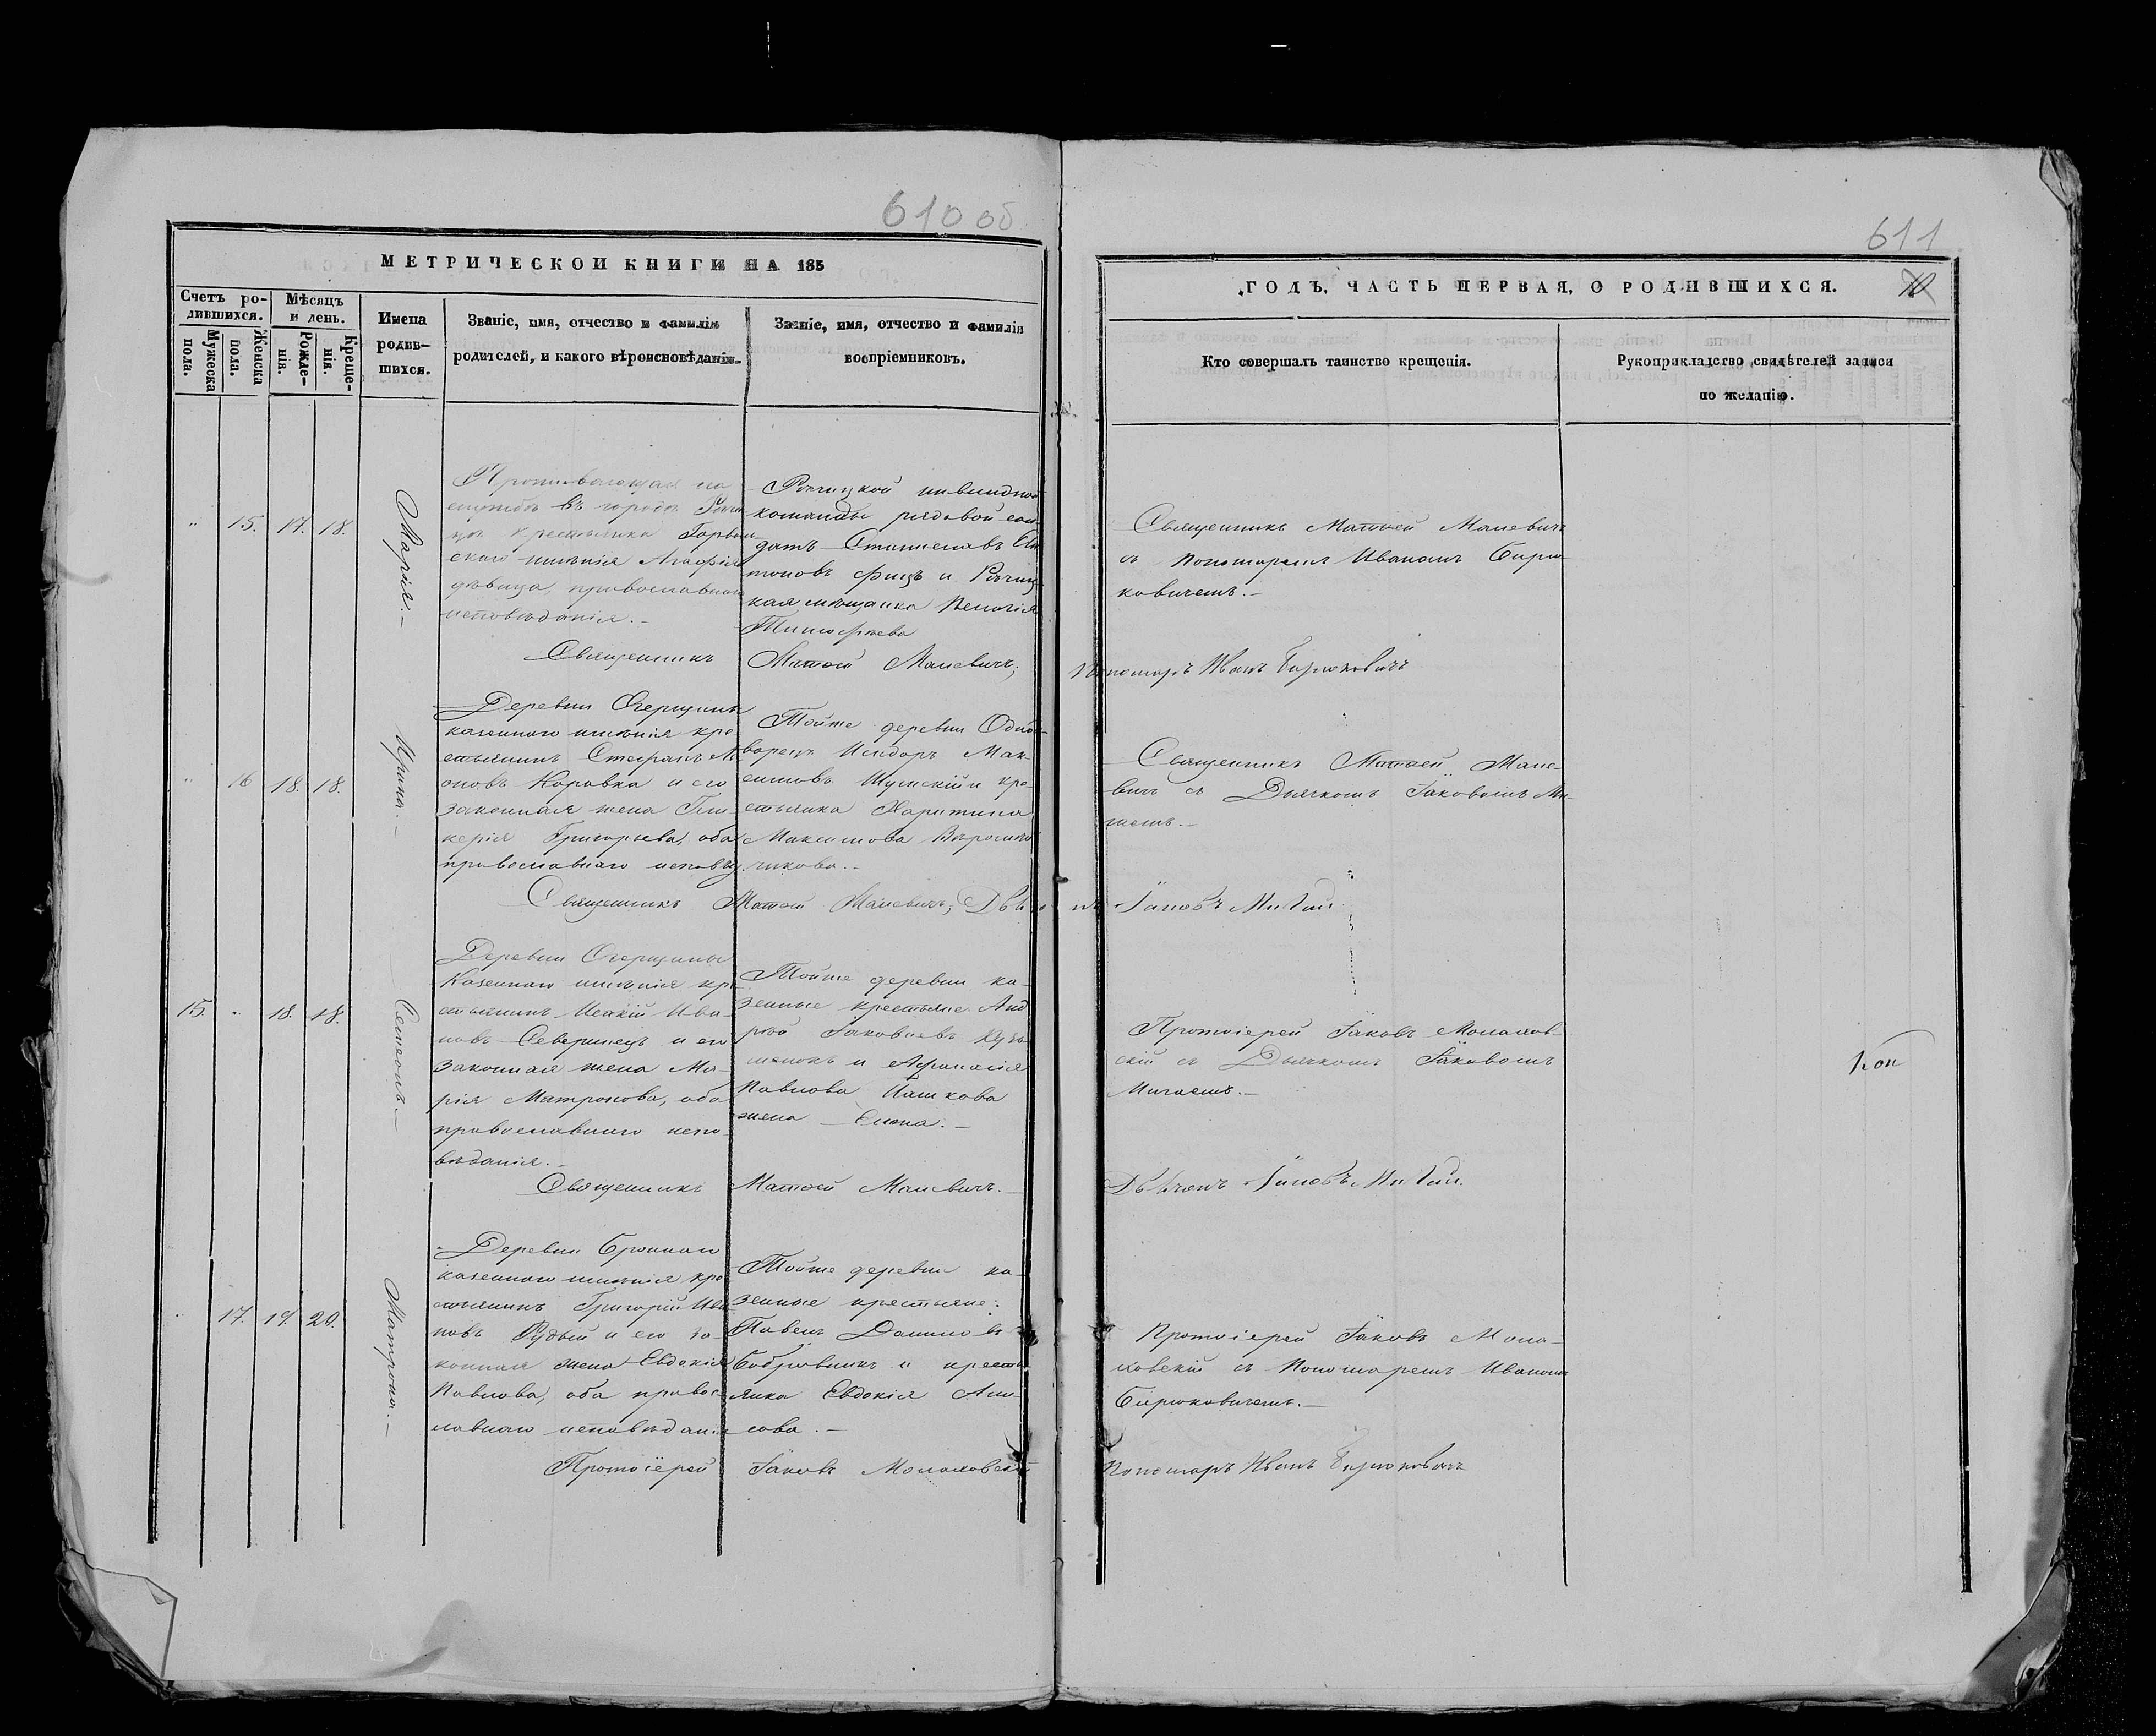 610 об
МЕТРИЧЕСКОЙ КНИГИ НА 185
Счетъ ро-
дившихся.
Мѣсяцъ
и день.
Мужеска
пола.
Женска
пола.
Рожде-
нія.
Креще-
нія.
Имена
родив-
шихся.
Званіе, имя, отчество и фамилія
родителей, и какого вѣроисповѣданія.
Званіе, имя, отчество и фамилія
воспріемниковъ.
" 15. 17. 18.
Марія.-
Проживающая на
службѣ въ городѣ Рѣчи-
цѣ крестьянка Горваль-
скаго имѣнія Агафія
дѣвица, православнаго
исповѣданія.-
Рѣчицкой инвалидной
команды рядовой сол-
датъ Станиславъ
и Рѣчиц-
кая мѣщанка Пелагія
Тимофѣева
Священникъ Матѳей Малевичъ;
" 16 18. 18.
Ирина.-
Деревни Озерщины
казеннаго имѣнія кре-
стьянинъ Стефанъ
Коровка и его
законная жена Гли-
керія Григорьева, оба
православнаго исповѣд.
Тойже деревни Одно-
ворецъ Исидоръ Мак-
симовъ Шумскій и кре-
стьянка Харитина
Максимова
Священникъ Матѳей Малевичъ; Дьячокъ Іаковъ Мигай
15. " 18. 18.
Симеонъ.-
Деревни Озерщины
Казеннаго имѣнія кре-
стьянинъ Ива-
новъ Северинецъ и его
законная жена Ма-
рія Матронова, оба
православнаго испо-
вѣданія.-
Тойже деревни ка-
зенные крестьяне Анд-
рей Іаковлевъ
и Афанасія
Павлова Пашкова
жена Елена.-
Священникъ Матѳей Малевичъ.-
" 17. 19. 20.
Матрона.-
Деревни Броннаго
казеннаго имѣнія кре-
стьянинъ Григорій Ива-
новъ Рудый и его за-
конная жена Евдокія
Павлова, оба правос-
лавнаго исповѣданія
Тойже деревни ка-
зенные крестьяне:
Павелъ Даниловъ
Бобровникъ и кресть-
янка Евдокія Али-
сова.-
Протоіерей Іаковъ Молаховскій
611
10
ГОДЪ, ЧАСТЬ ПЕРВАЯ, О РОДИВШИХСЯ.
Кто совершалъ таинство крещенія.
Рукоприкладство свидѣтелей записи
по желанію.
Священникъ Матѳей Малевичъ
съ Пономаремъ Иваномъ Бирю-
ковичемъ.-
Пономарь Иванъ Бирюковичъ
Священникъ Матѳей Мале-
вичъ съ Дьячкомъ Іаковомъ Ми-
гаемъ.-
Протоіерей Іаковъ Молахов-
скій съ Дьячкомъ Іаковомъ
Мигаемъ.-
Дьячокъ Іаковъ Мигай.
Коп
Протоіерей Іаковъ Мола-
ховскій съ Пономаремъ Иваномъ
Бирюковичемъ.-
Пономарь Иванъ Бирюковичъ